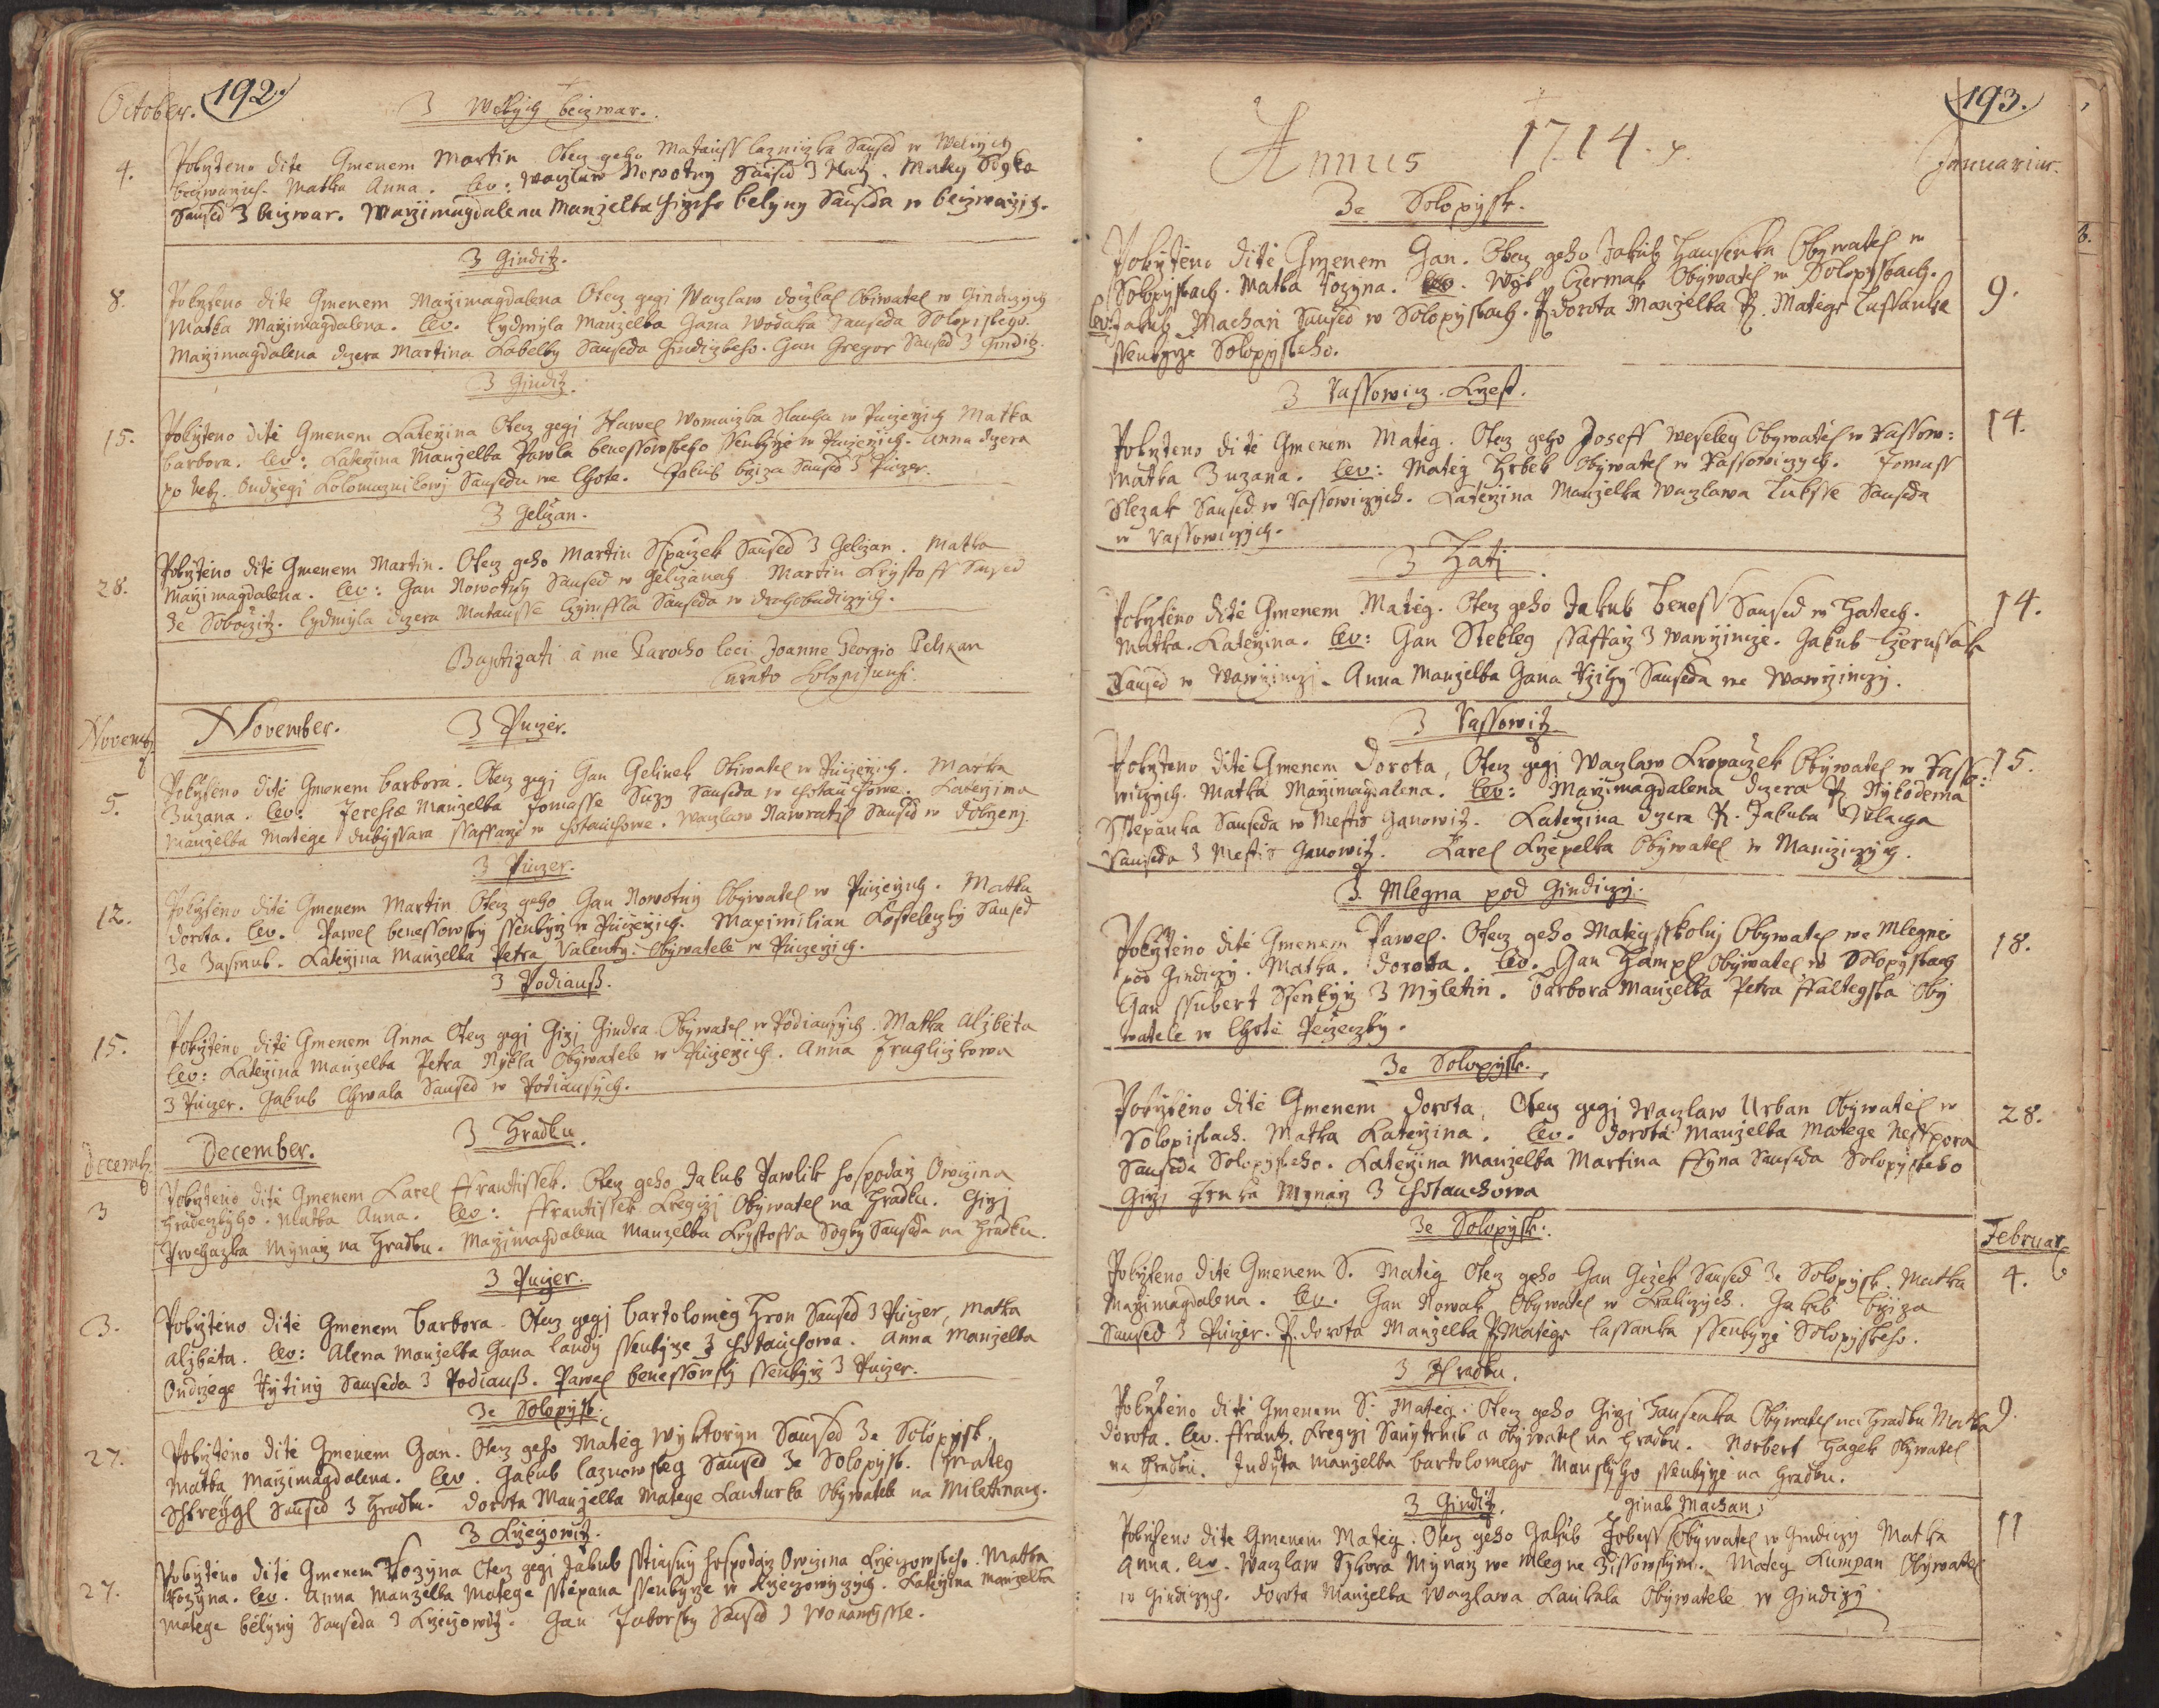 October. 192.
3 Welkych beczwar.
4. Pokrzteno dite Gmenem Martin Otecz geho Matauss lazniczka Saused w Welkych
beczwarych. Matka Anna. lev: Wazlaw Nowotny Saused 3 Mateg Sogka
Saused 3 beczwar. Marzimagdalena Manzelka belyny Sauseda w beczwarzich.
3 Ginditz.
8. Pokrzteno dite Gmenem Marzimagdalena Otecz gegi Wazlaw Obiwatel w Gindiczych
Matka Marzimagdalena. lev. lydmyla Manzelka Gana Wodaka Sauseda Solopiskeho.
Marzimagdalena dczera Martina Labelky Sauseda Gindiczkeho. Gan Gregor Saused 3 Ginditz.
3 Ginditz.
15. Pokrzteno dite Gmenem Katerzina Otecz gegi Pawel Womaczka w Puczerzich Matka
barbora. lev: Katerzina Manzelka Pawla benessowskeho Ssenkyrze w Puczerzich. Anna dczera
po neb. Ondrzegi Kolomaznikowi Sausedu we Lhote. Jakub brziza Saused 3 Puczer.
3 Gelczan.
28. Pokrzteno dite Gmenem Martin. Otecz geho Martin Sspaczek Saused 3 Gelczan. Matka
Marzimagdalena. lev: Gan Nowotny Saused w Gelczanech Martin Krystoff Saused
3e Soboczitz. lydmyla dczera Matausse Sauseda w drahobudiczych.
Baptizati à me Parocho loci Joanne Georgio Pelikan
Curato
Novemb. November. 3 Puczer.
5. Pokrzteno dite Gmenem barbora. Otecz gegi Gan Gelinek Obiwatel w Puczerzich. Matka
Zuzana. lev: Manzelka Tomasse Suzy Sauseda w Chotauchowe. Katerzina
Manzelka Matege dubyssara Ssaffarze w Chotauchowe. Wazlaw Nawratil Saused w dobrzeni.
3 Puczer.
12. Pokrzteno dite Gmenem Martin Otecz geho Gan Nowotny Obywatel w Puczerzich. Matka
dorota. lev. Pawel benessowsky Ssenkyrz w Puczerzich. Maximilian Kosteleczky Saused
3e Zasmuk. Katerzina Manzelka Petra Valenty. Obywatele w Puczerzich.
3 Podiauss.
15. Pokrzteno dite Gmenem Anna Otecz gegi Girzi Gindra Obywatel w Podiausych. Matka Alzbeta
lev: Katerzina Manzelka Petra Nykla Obywatele w Puczerzich. Anna Truhliczkowa
3 Puczer. Gakub Chwala Saused w Podiausych.
Decemb. December. 3 Hradku.
3 Pokrzteno dite Gmenem Karel Frantissek. Otecz geho Jakub Pawlik hospodarz Dworzina
Hradeczkyho. Matka Anna. lev: Frantissek Kregczi Obywatel na Hradku. Girzi
Prochazka Mynarz na Hradku. Marzimagdalena Manzelka Krystoffa Sogky Sauseda na Hradku.
3 Puczer.
3. Pokrzteno dite Gmenem barbora. Otecz gegi bartolomeg Hron Saused 3 Puczer, Matka
Alzbeta. lev: Alena Manzelka Gana landy Ssenkyrze 3 Chotauchowa. Anna Manzelka
Ondrzege Rytiny Sauseda 3 Podiauss. Pawel benessowsky Ssenkyrz 3 Puczer.
3e Solopysk.
27. Pokrzteno dite Gmenem Gan. Otecz geho Mateg Wyktoryn Saused 3e Solopysk.
Matka Marzimagdalena. lev. Gakub laznowskeg Saused 3e Solopysk. Mateg
Schreygl Saused 3 Hradku. dorota Manzelka Matege Kanturka Obywatele na Miletinach.
3 Krzeczowitz.
27. Pokrzteno dite Gmenem Rozyna Otecz gegi Jakub Sstiasny hospodarz Dworzina Krzeczowskeho. Matka
Rozyna. lev. Anna Manzelka Matege Sstepana Ssenkyrze w Krzeczowiczych. Katerzina Manzelka
Matege belyny Sauseda 3 Krzeczowitz. Gan Taborsky Saused 3 Wonomyssle.
193.
Annus 1714.
Januarius.
3e Solopysk.
Pokrzteno dite Gmenem Gan. Otecz geho Jakub Hausenka Obywatel w
Solopyskach. Matka Rozyna. lev. Wyt Czermak Obywatel w Solopyskach. 9.
lev: Jakub Machan Saused w Solopyskach. P. dorota Manzelka P. Matege Lassanka
Ssenkyrze Solopyskeho.
3 Vassowicz. Krzest.
Pokrzteno dite Gmenem Mateg. Otecz geho Joseff Weseley Obywatel w Vassow: 14.
Matka Zuzana. lev: Mateg Hrbek Obywatel w Vassowiczych. Tomass
Slezak Saused w Vassowiczych. Katerzina Manzelka Wazlawa Luksse Sauseda
w Vassowiczych.
3 Hati
Pokrzteno dite Gmenem Mateg. Otecz geho Jakub beness Saused w Hatech. 14.
Matka. Katerzina. lev: Gan Stekleg Ssaffarz 3 Wawrzincze. Gakub Czerussak
Saused w Wawrzinczi. Anna Manzelka Gana Rzihy Sauseda we Wawrzinczy.
3 Vassowitz
Pokrzteno dite Gmenem Dorota, Otecz gegi Wazlaw Kropaczek Obywatel w Vasso: 15.
wiczych. Matka Marzimagdalena. lev: Marzimagdalena dczera P. Nykodema
Sstepanka Sauseda w Mestis Ganowitz. Katerzina dczera P. Jakuba
Sauseda 3 Mestis Ganowitz. Karel Krzepelka Obywatel w Mancziczych.
3 Mlegna pod Gindiczy.
Pokrzteno dite Gmenem Pawel. Otecz geho Mateg Sskolny Obywatel we Mlegne
pod Gindiczy. Matka. dorotta. lev. Gan Hampl Obywatel w Solopyskach 18.
Gan Ssubert Ssenkyrz 3 Myletin. Barbora Manzelka Petra Ffaltegska Oby
watele w Lhote Peczeczky.
3e Solopysk.
Pokrzteno dite Gmenem Dorota, Otecz gegi Wazlaw Urban Obywatel w 28.
Solopiskach. Matka Katerzina. lev. dorota Manzelka Matege Nesspora
Sauseda Solopyskeho. Katerzina Manzelka Martina Ffyna Sauseda Solopyskeho
Girzi Trnka Mynarz 3 Chotauchowa
3e Solopysk. Februar.
Pokrzteno dite Gmenem S. Mateg Otecz geho Gan Gezek Saused 3e Solopysk. Matka 4.
Marzimagdalena. lev. Gan Nowak Obywatel w Kraliczych. Jakub brziza
Saused 3 Puczer. P. dorota Manzelka P. Matege lassanka Ssenkyrze Solopyskeho.
3 Hradku.
Pokrzteno dite Gmenem S. Mateg. Otecz geho Girzi Hausenka Obywatel na Hradku Matka 9.
Dorota. lev. Frantz. Kregczi Sanytrnik a obywatel na Hradku. Norbert Hagek Obywatel
na Hradku. Judyta Manzelka bartolomege Manskyho Ssenkyrze na Hradku.
3 Ginditz. ginak Machan
Pokrzteno dite Gmenem Mateg. Otecz geho Jakub Tobess Obywatel w Gindiczy Matka 11
Anna. lev. Wazlaw Sykora Mynarz we Mlegne Mateg Kumpan Obywatel
w Gindiczych. dorota Manzelka Wazlawa Kaukala Obywatele w Gindiczy